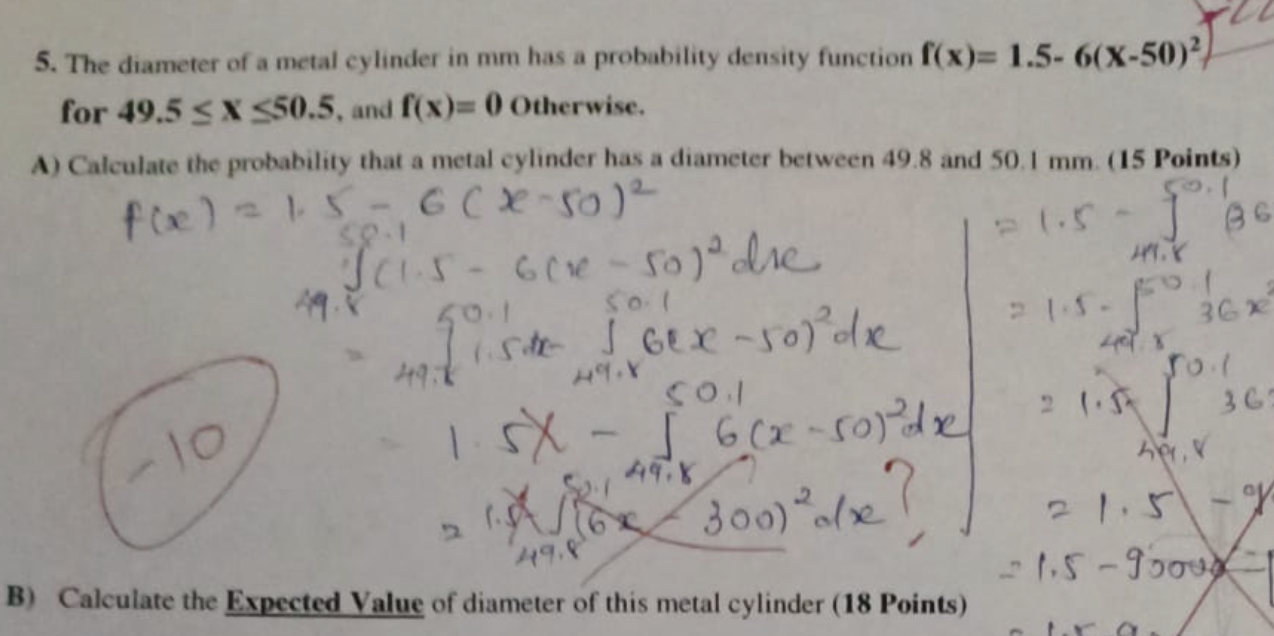 5. The diameter of a metal cylinder in mm has a probability density function f(x)= 1.5- 6(X-50)²,
for 49.5 ≤ X ≤50.5, and f(x)= 0 Otherwise.
A) Calculate the probability that a metal cylinder has a diameter between 49.8 and 50.1 mm. (15 Points)
f(x) = 1.5 - 6(x-50)²
50.1
∫(1.5 - 6(x-50)² dx
49.8
50.1 50.1
= ∫ 1.5dx - ∫ 6(x-50)² dx
49.8 49.8
50.1
1.5X - ∫ 6(x-50)² dx
49.8
50.1
= 1.5X ∫(6x - 300)² dx ?
49.8
-10
50.1
= 1.5 - ∫ 36
49.8
50.1
= 1.5 - ∫ 36x²
49.8
50.1
= 1.5 - ∫ 36
49.8
= 1.5 - 9
= 1.5 - 90000
B) Calculate the Expected Value of diameter of this metal cylinder (18 Points)